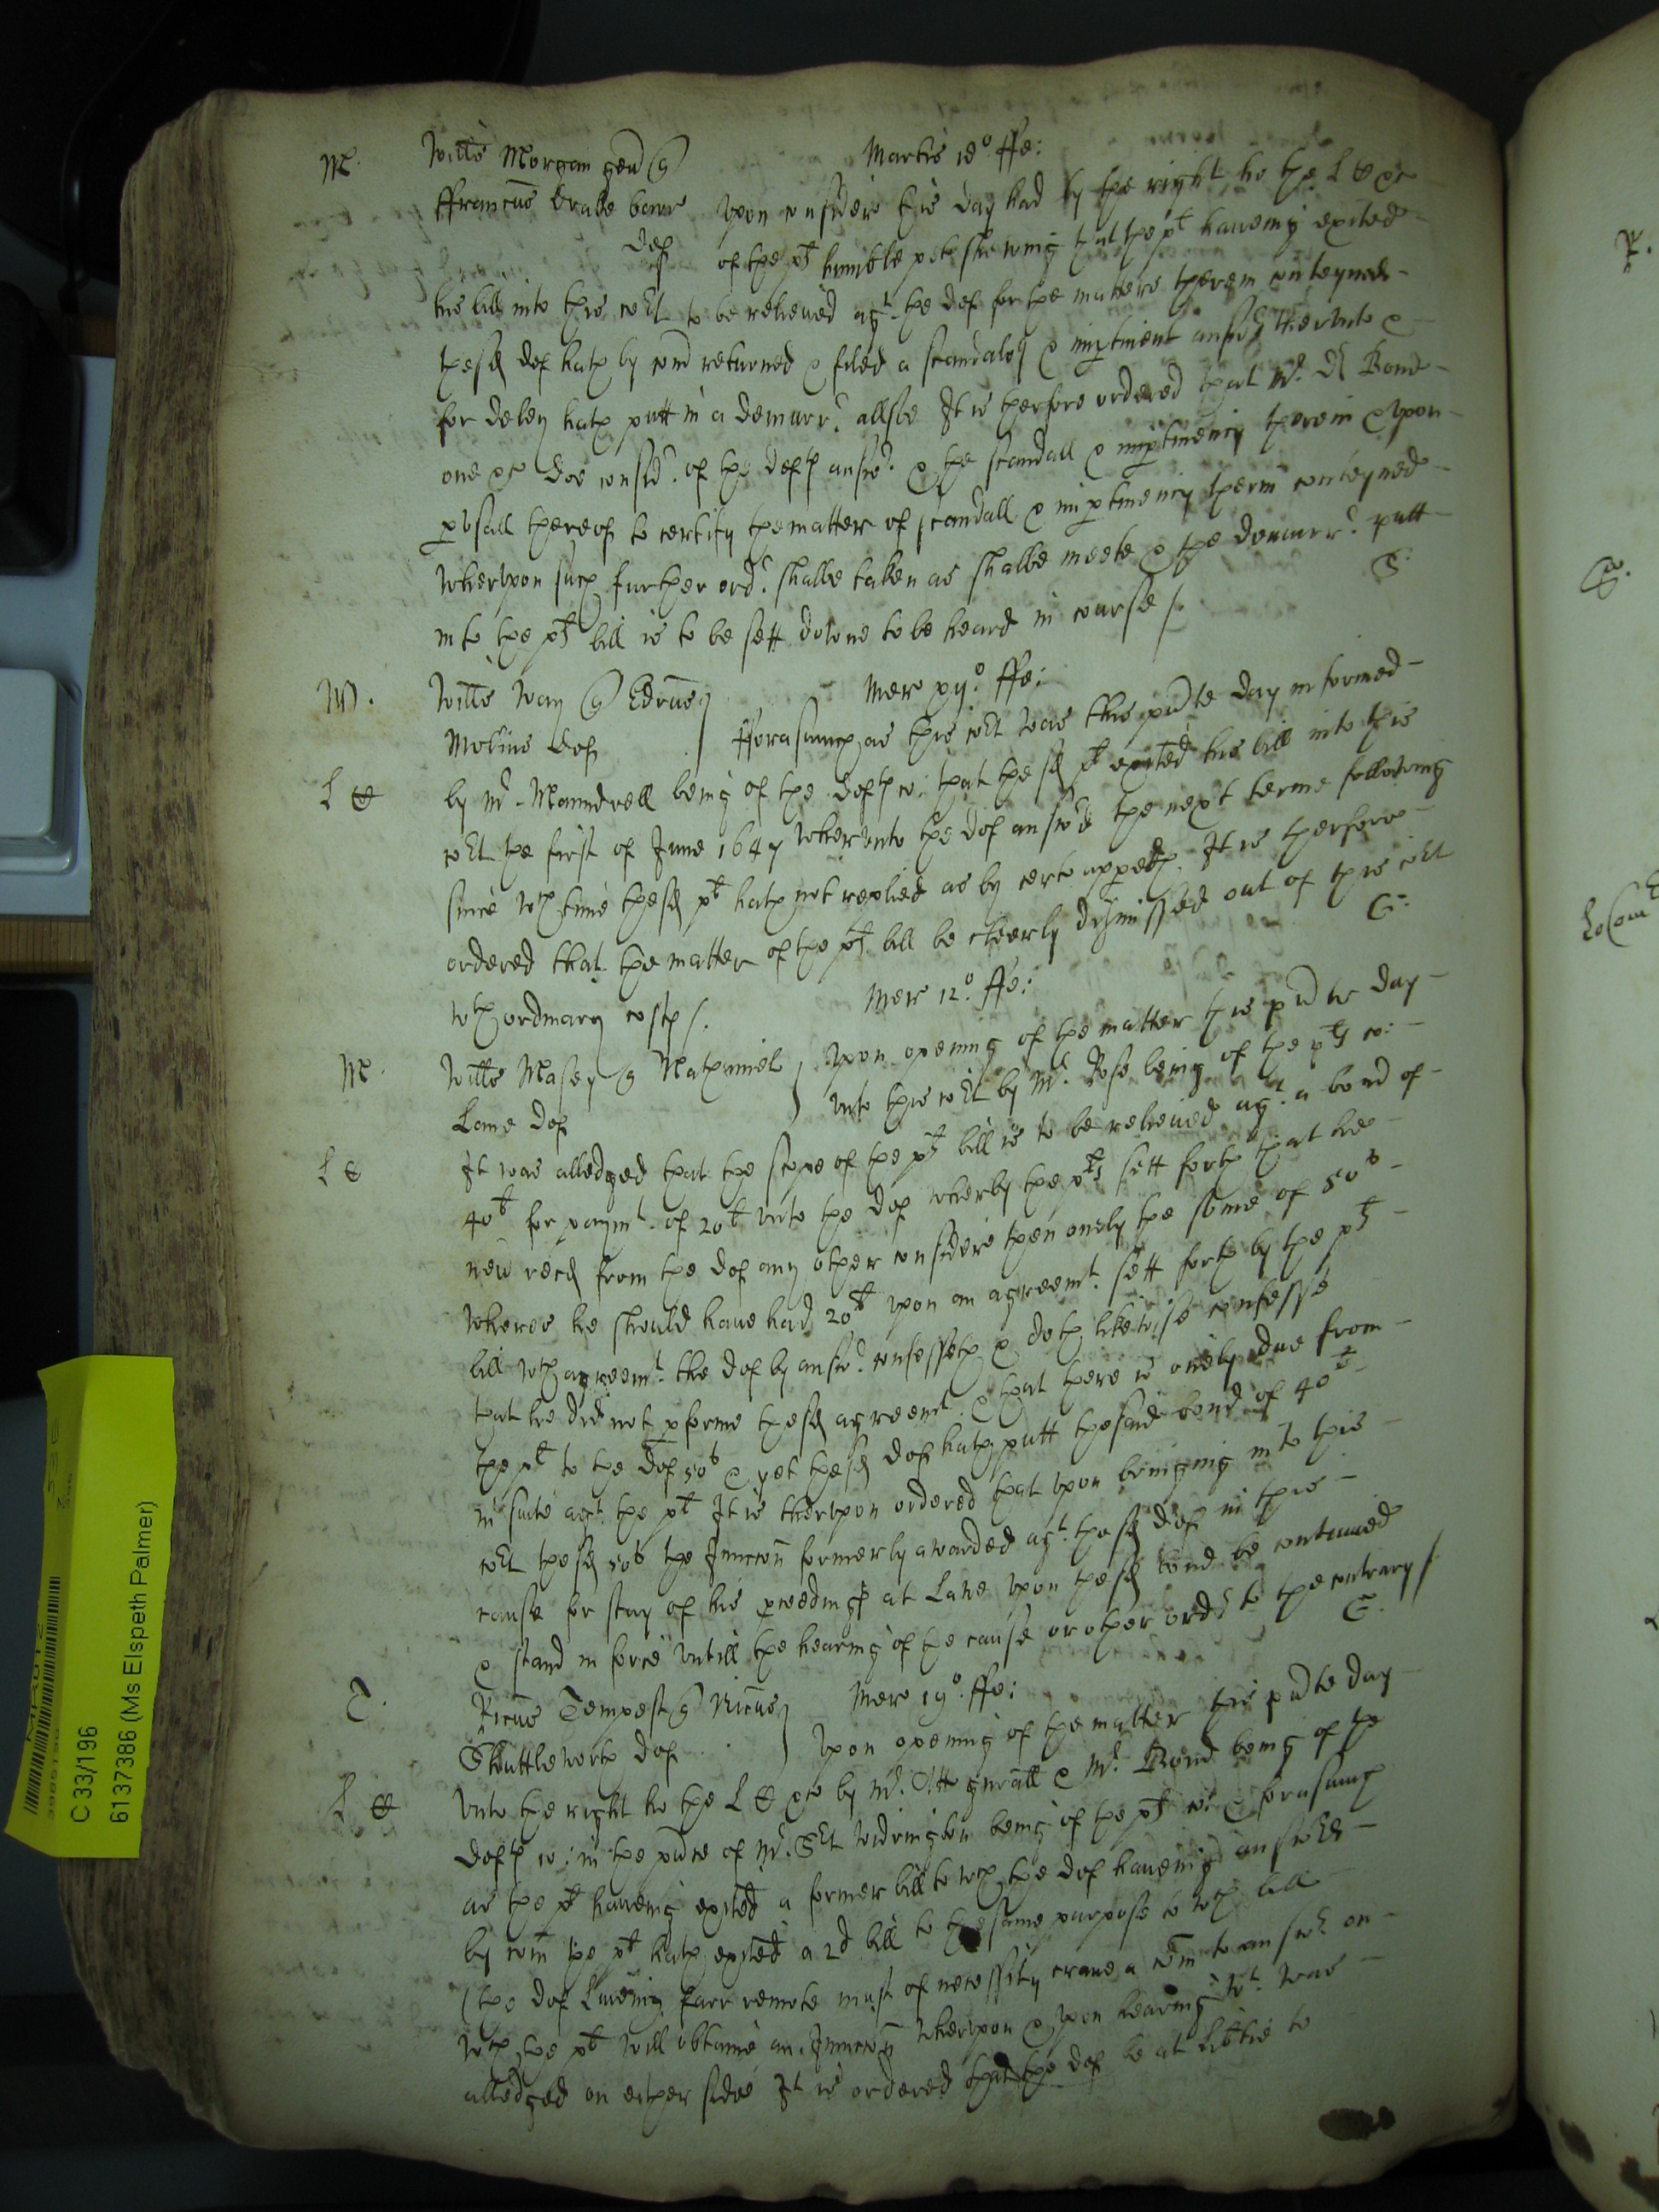 M. Willms Morgan gen q Martis 18o ffe:
ffrancus Drake barr Upon considerc this day had by the right ho the L C &c
def of the plt humble petn shewing that the plt haueing exited
his bill into this Court to be relieued agt the def for the matters therein conteyned
the sd def hath by com returned & filed a scandalos & impertinent answer therevnto &
for delay hath putt in a demurrr allsoe It is therfore ordered that Mr Dr Bond
one &c doe considr of the defts answr & the scandall & impertinency therein & vpon
pvsall thereof to certify the matter of scandall & impertinency therin conteyned
wherevpon such further ordr shalbe taken as shalbe meete & the demurrr putt
in to the plts bill is to be sett downe to be heard in course /.
M. Willms Way q Edrus Merc ffe:
Molins def fforasmuch as this Court was this pnte day informed
L C by Mr Maundrell being of the defts co: that the sd plt exited his bill into this
Court the first of June 1647 wherevnto the def answred the next terme following
since wch time the sd plt hath not replied as by certe appeth. It is therfore
ordered that the matter of the plts bill be cleerly dismissed out of this Court
wth ordinary costs /.
M. Willms Masey q Nathaniel Merc 12o ffe:
Lane def Vpon opening of the matter this pnte day
vnto this Court by Mr Rose being of the plts co:
L C It was alledged that the scope of the plts bill is to be relieued agt a bond of
40l for paymt of 20l vnto the def wherby the plts sett forth that hee
neu recd from the def any other considerc then onely the some of 50s
wheras he should haue had 20l vpon an agreemt sett forth by the plts
bill wch agreemt the def by answr confesseth & doth likewise confesse
that he did not pforme the sd agreemt & that there is onely due from
the plt to the def 50s & yet the sd def hath putt the said bond of 40l
in suite agt the plt It is thervpon ordered that vpon bringing into this
Court the sd 50s the Iniuncon formerly awarded agt the sd def in this
cause for stay of his pceedings at Lawe vpon the sd bond be continued
& stand in force vntill the hearing of the cause or other ordr to the contrary /
T. Ricus Tempest q Nicus Merc 19o ffe:
Shuttleworth def Vpon opening of the matter this pnte day
L C vnto the right ho the L C &c by Mr Att gnrall & Mr Bond being of the
defts co: in the pnce of Mr Srt Widrington being of the plts co: & forasmuch
as the plt haueing exited a former bill to wch the def haueing answred
by com the plt hath exited a 2d bill to the same purpose to wch bill
(the def liueing farr remote must of necessity craue a Com to answr on
wch the plt will obtaine an Iniuncon wherevpon & vpon hearing wt was
alledged on either side It is ordered that the def be at libtie to
C 33/196
6137386 (Ms Elspeth Palmer)